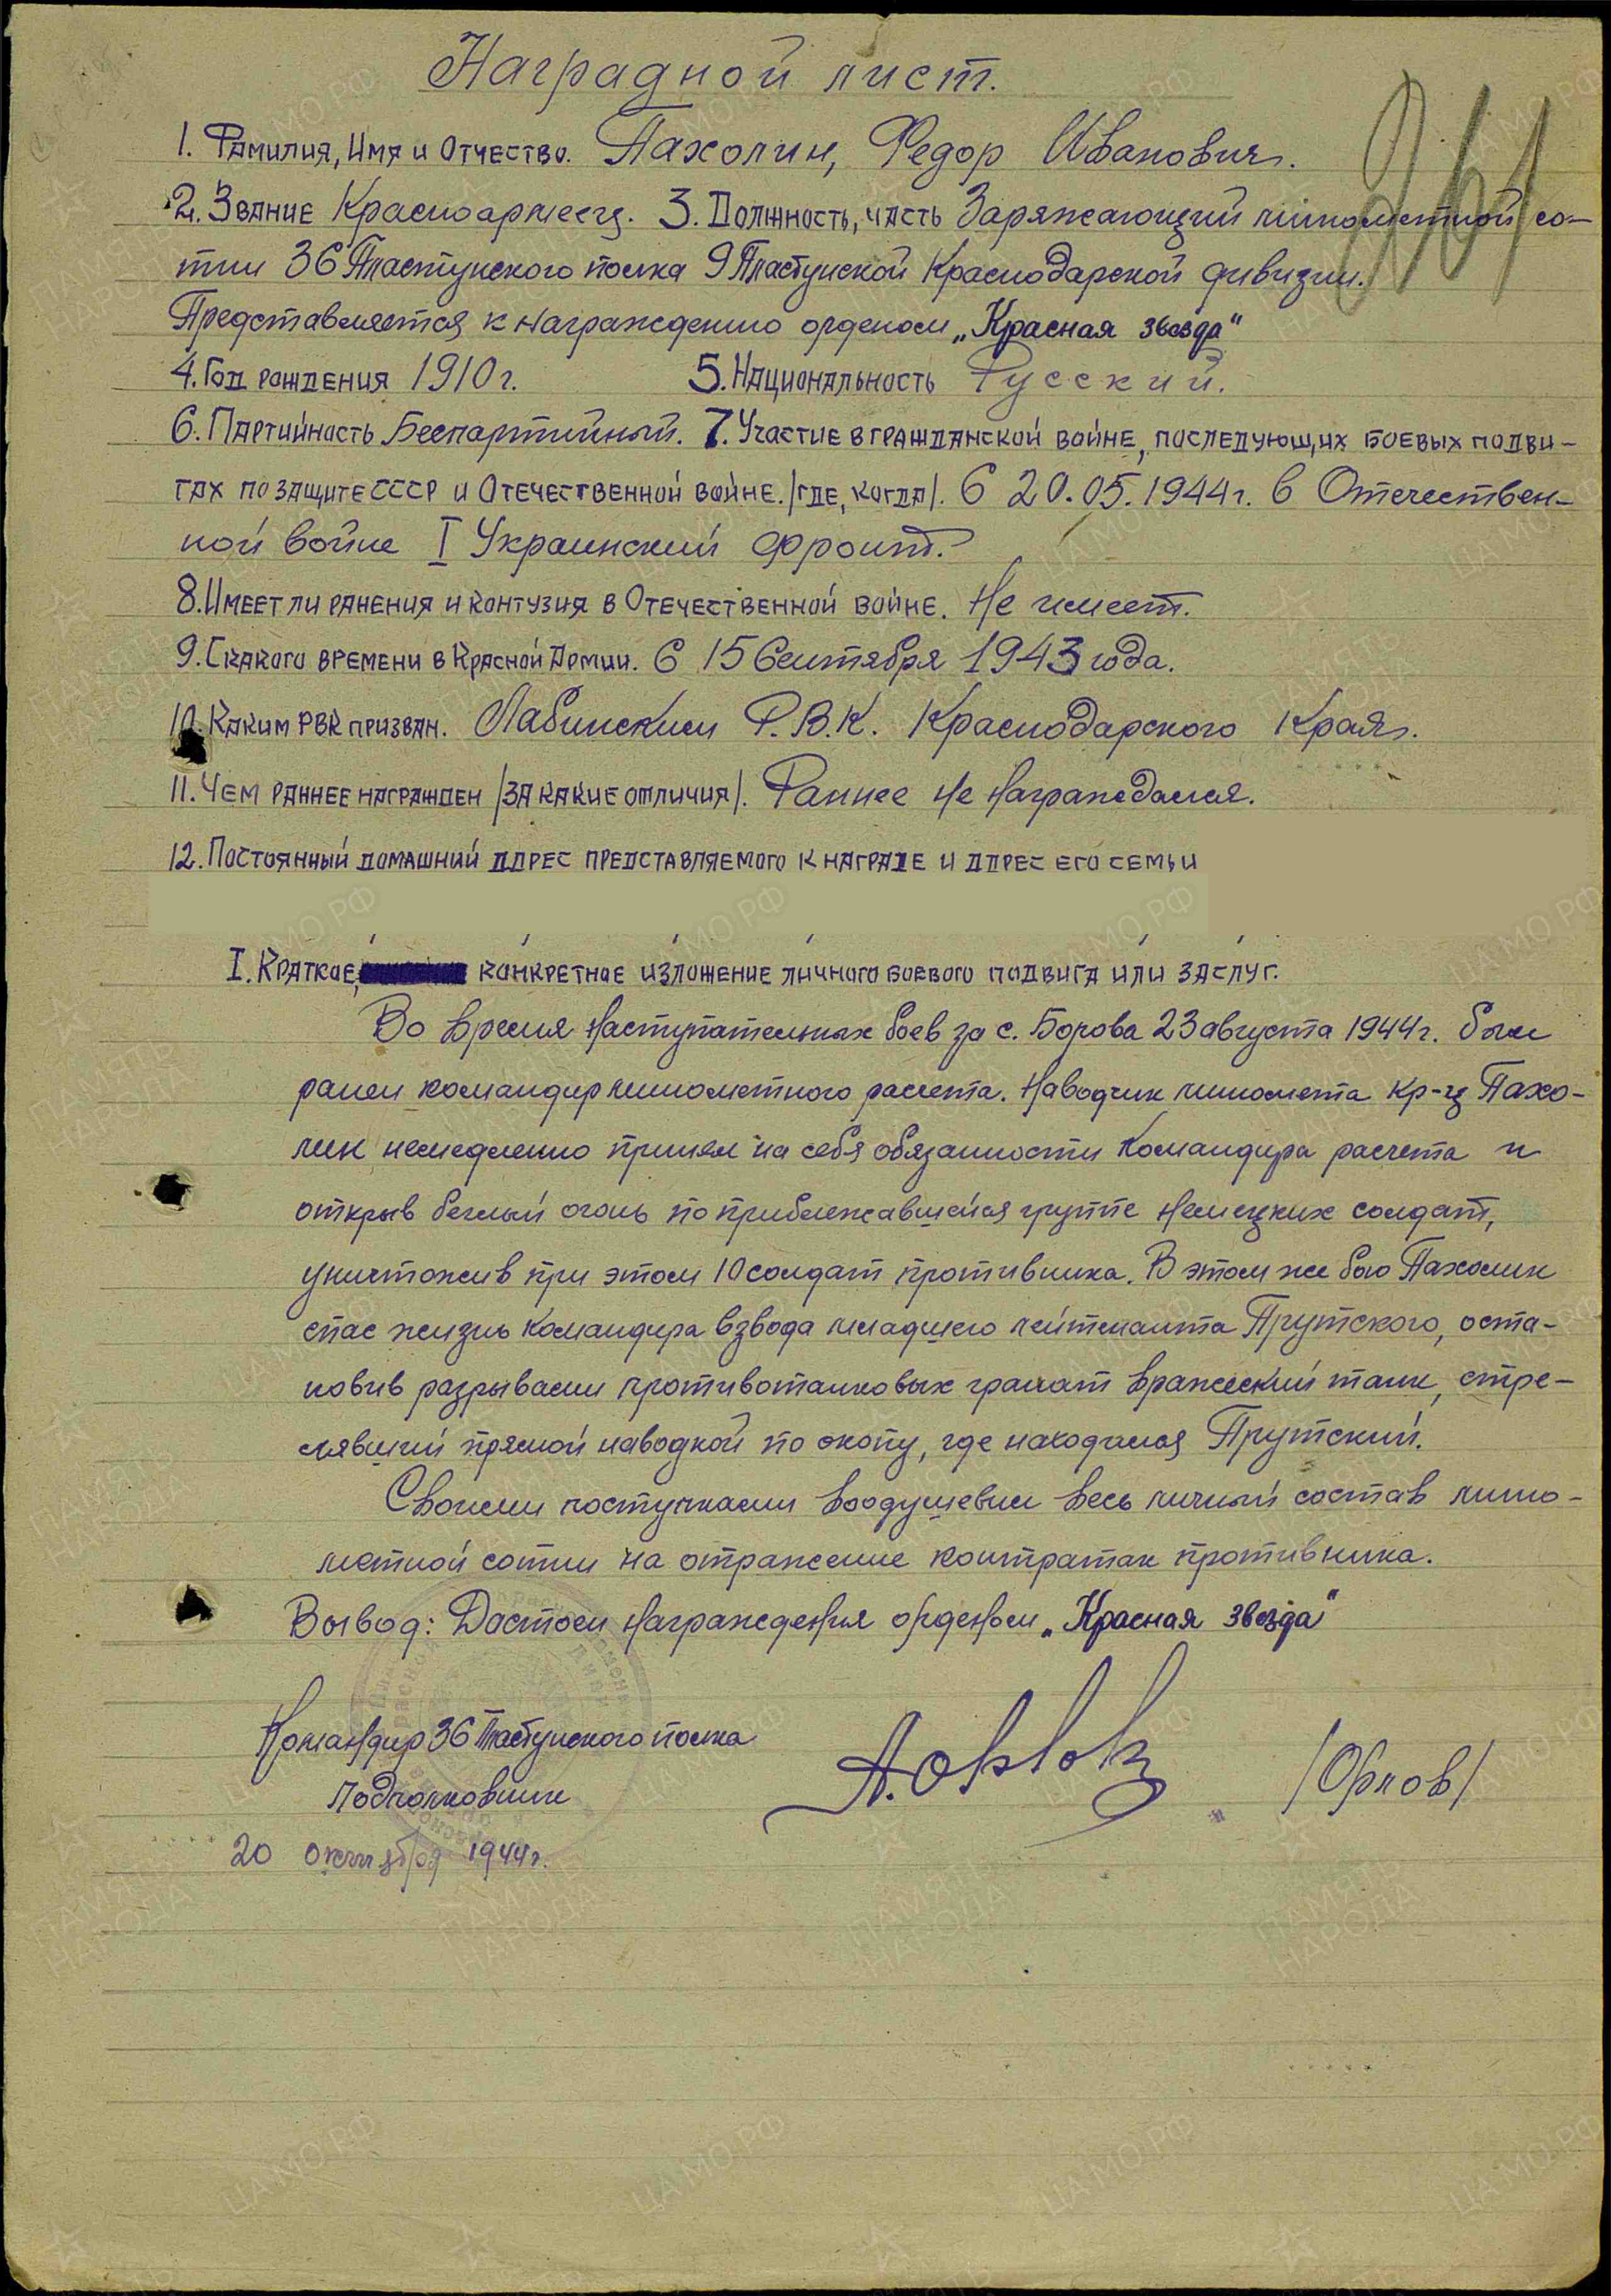 Наградной лист.
1. Фамилия, Имя и Отчество. Пахолин, Федор Иванович.
2. Звание Красноармеец. 3. Должность, часть Заряжающий минометной со-
тни 36 Пластунского полка 9 Пластунской Краснодарской дивизии.
Представляется к награждению орденом „Красная звезда"
4. Год рождения 1910 г. 5. Национальность Русский.
6. Партийность Беспартийный. 7. Участие в гражданской войне, последующих боевых подви-
гах по защите СССР и Отечественной войне. /где, когда/. С 20.05.1944 г. в Отечествен-
ной войне I Украинский фронт.
8. Имеет ли ранения и контузия в Отечественной войне. Не имеет.
9. С какого времени в Красной Армии. С 15 Сентября 1943 года.
10. Каким РВК призван. Лабинским Р.В.К. Краснодарского Края.
11. Чем раннее награжден /за какие отличия/. Раннее не награждался.
12. Постоянный домашний адрес представляемого к награде и адрес его семьи
I. Краткое, конкретное изложение личного боевого подвига или заслуг.
Во время наступательных боев за с. Борова 23 августа 1944 г. был
ранен командир минометного расчета. Наводчик миномета кр-ц Пахо-
лин немедленно принял на себя обязанности командира расчета и
открыв беглый огонь по приближавшейся группе немецких солдат,
уничтожив при этом 10 солдат противника. В этом же бою Пахолин
спас жизнь командира взвода младшего лейтенанта Прутского, оста-
новив разрывами противотанковых гранат вражеский танк, стре-
лявший прямой наводкой по окопу, где находился Прутский.
Своими поступками воодушевил весь личный состав мино-
метной сотни на отражение контратак противника.
Вывод: Достоен награждения орденом „Красная звезда"
Командир 36 Пластунского полка
Подполковник
А. Орлов /Орлов/
20 октября 1944 г.
261
ПАМЯТЬ НАРОДА
ЦА МО РФ